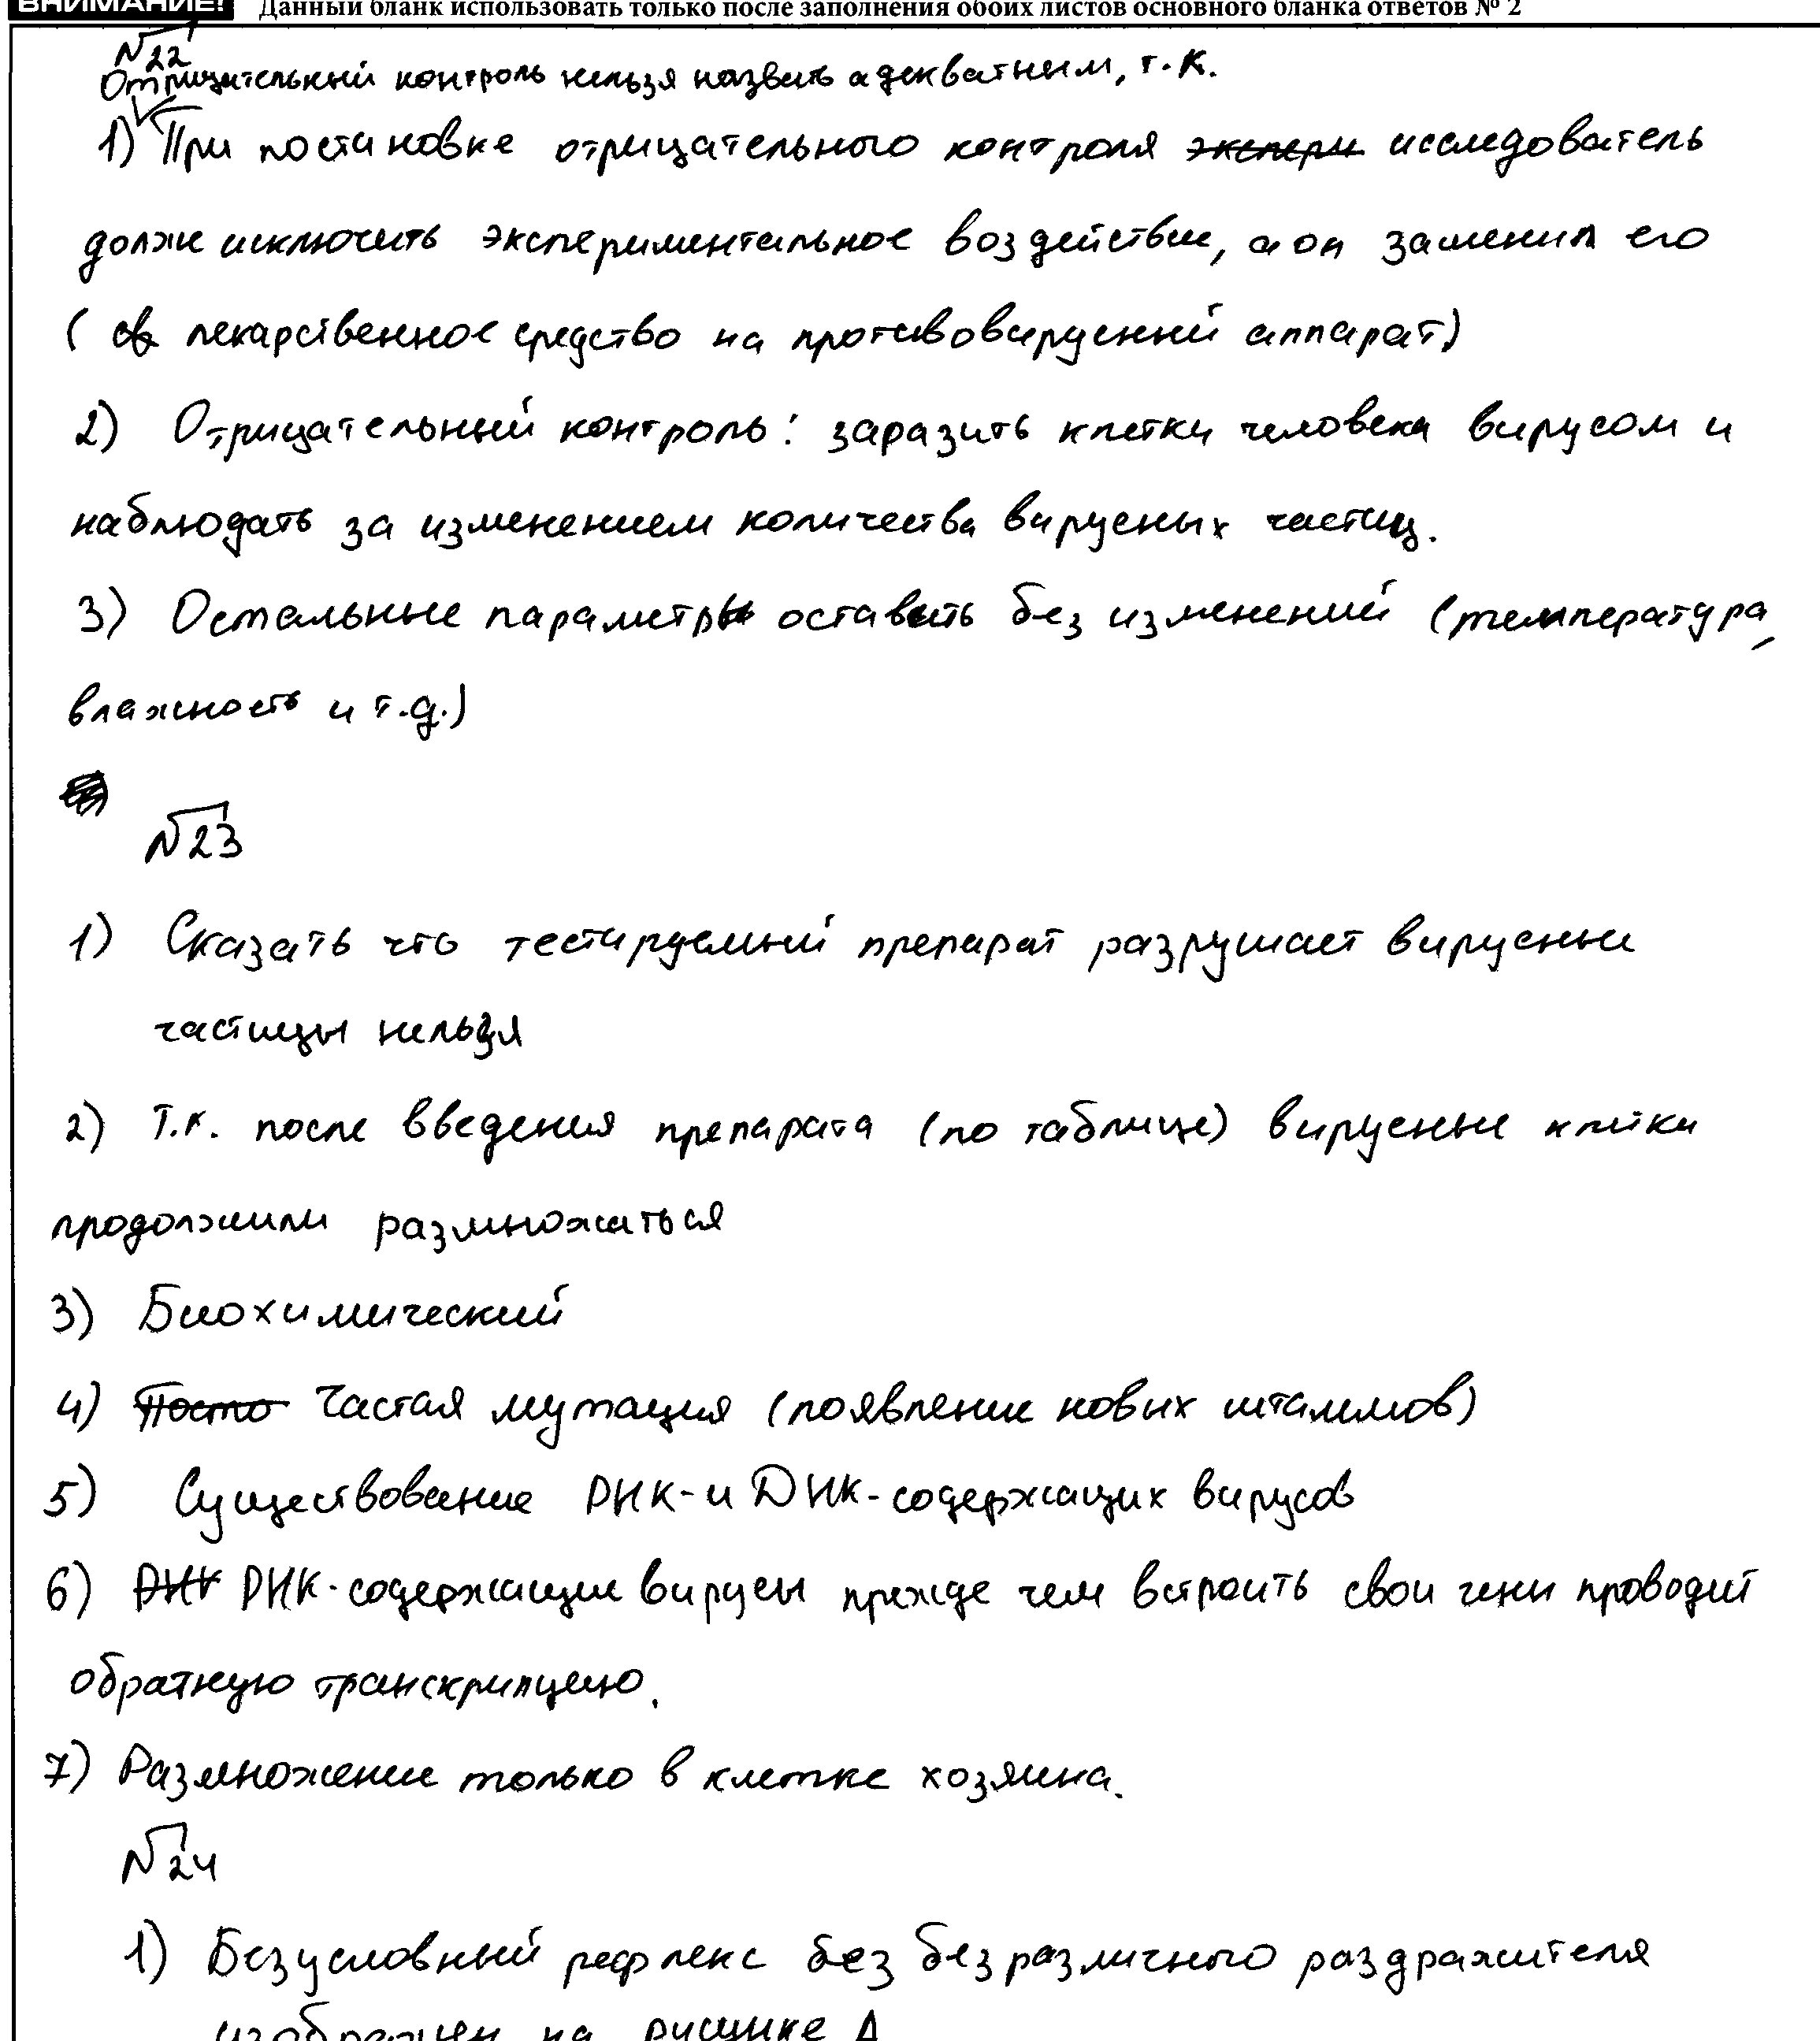 ВНИМАНИЕ! Данный бланк использовать только после заполнения обоих листов основного бланка ответов № 2
№22
Отрицительный контроль нельзя назвать адекватным, т.к.
1) При постановке отрицательного контроля экспери исследователь
должн исключить экспериментальное воздействие, а он заменил его
( лекарственное средство на противовирусный аппарат)
2) Отрицательный контроль: заразить клетки человека вирусом и
наблюдать за изменением количества вирусных частиц.
3) Остальные параметры оставить без изменений (температура,
влажность и т.д.)
№23
1) Сказать что тестируемый препарат разрушает вирусные
частицы нельзя
2) Т.к. после введения препарата (по таблице) вирусные клетки
продолжили размножаться
3) Биохимический
4) Посто Частая мутация (появление новых штаммов)
5) Существование РНК-и ДНК-содержащих вирусов
6) РНК РНК-содержащие вирусы прежде чем встроить свои гены проводят
обратную транскрипцию.
7) Размножение только в клетке хозяина.
№24
1) Безусловный рефлекс без безразличного раздражителя
изображен на рисунке А